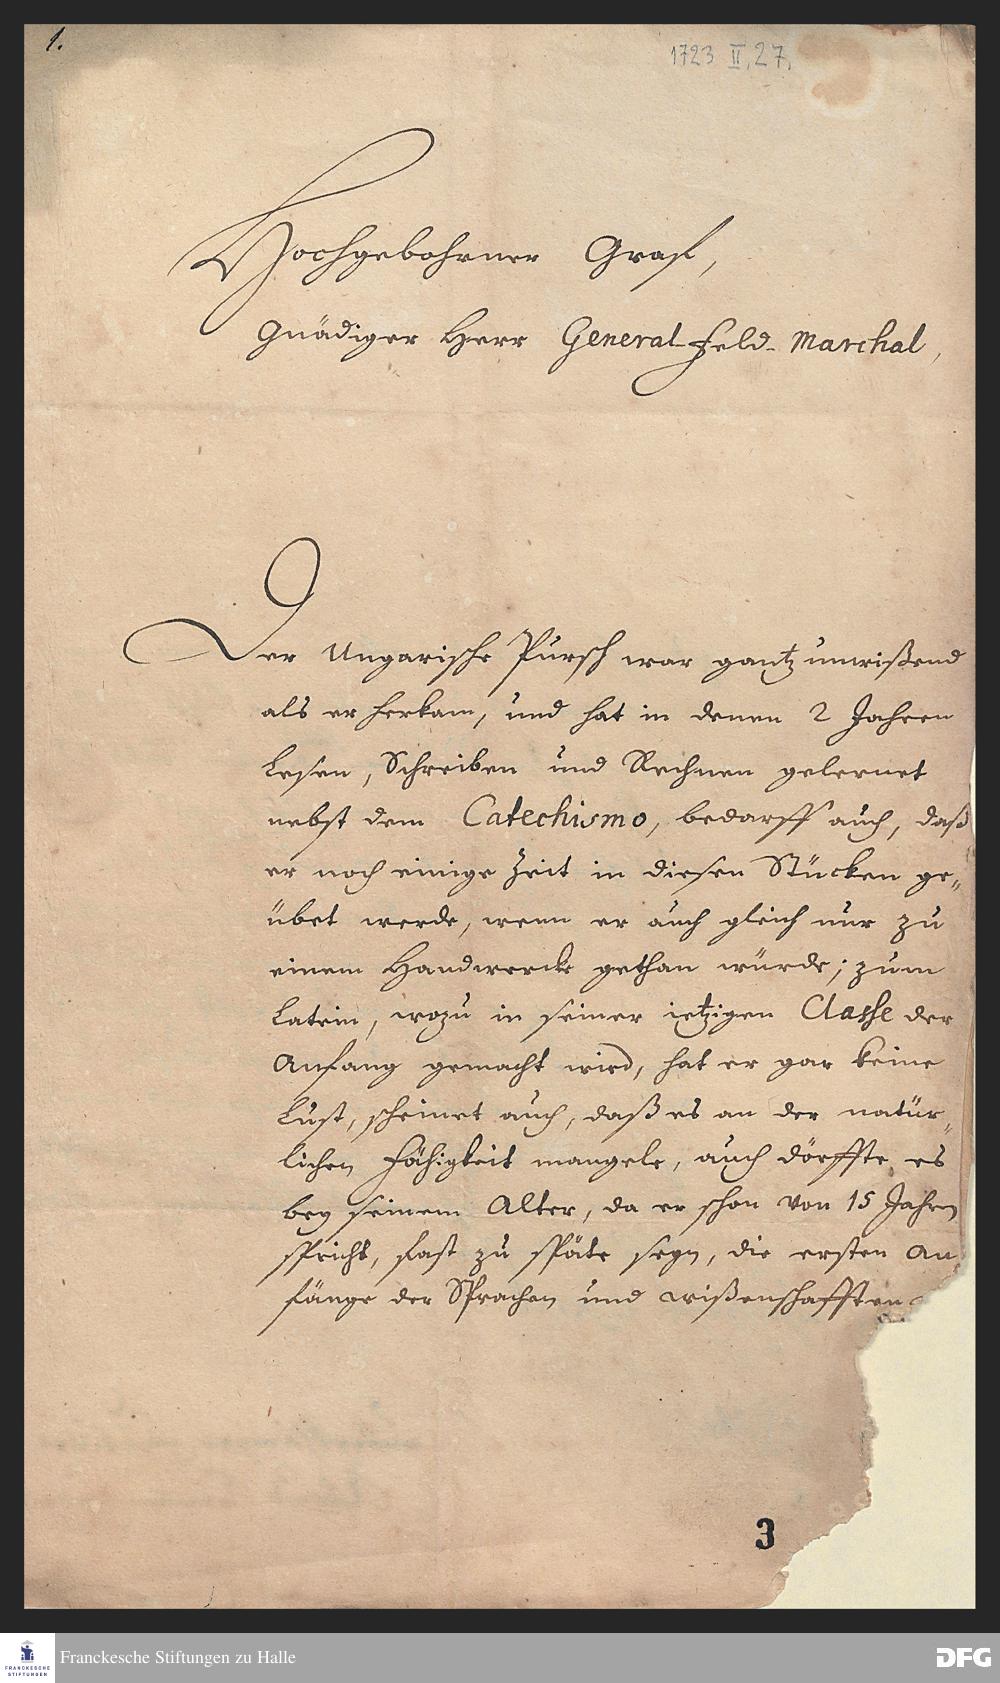 1.
1723 II, 27.
Hochgebohrner Graf,
Gnädiger Herr General-Feld-Marchal,
Der Ungarische Pursch war gantz unwißend
als er herkam, und hat in denen 2 Jahren
Lesen, Schreiben und Rechnen gelernet
nebst dem Catechismo, bedarff auch, daß
er noch einige Zeit in diesen Stücken ge„
übet werde, wenn er auch gleich nur zu
einem Handwercke gethan würde; zum
Latein, wozu in seiner ietzigen Classe der
Anfang gemacht wird, hat er gar keine
Lust, scheinet auch, daß es an der natür„
lichen Fähigkeit mangele, auch dörffte es
bey seinem Alter, da er schon von 15 Jahren
spricht, fast zu späte seyn, die ersten An
fänge der Sprachen und wißenschafften
3
Franckesche Stiftungen zu Halle
FRANCKESCHE
STIFTUNGEN
DFG